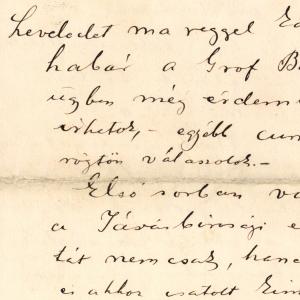 Leveledet ma reggel
habár a Gróf B
ügben még érdem
irhatok, - egyébb
rögtön válaszolok. -
Első sorban va
a Járásbirósági e
tát nemcsak, hanem
és akkor csatolt